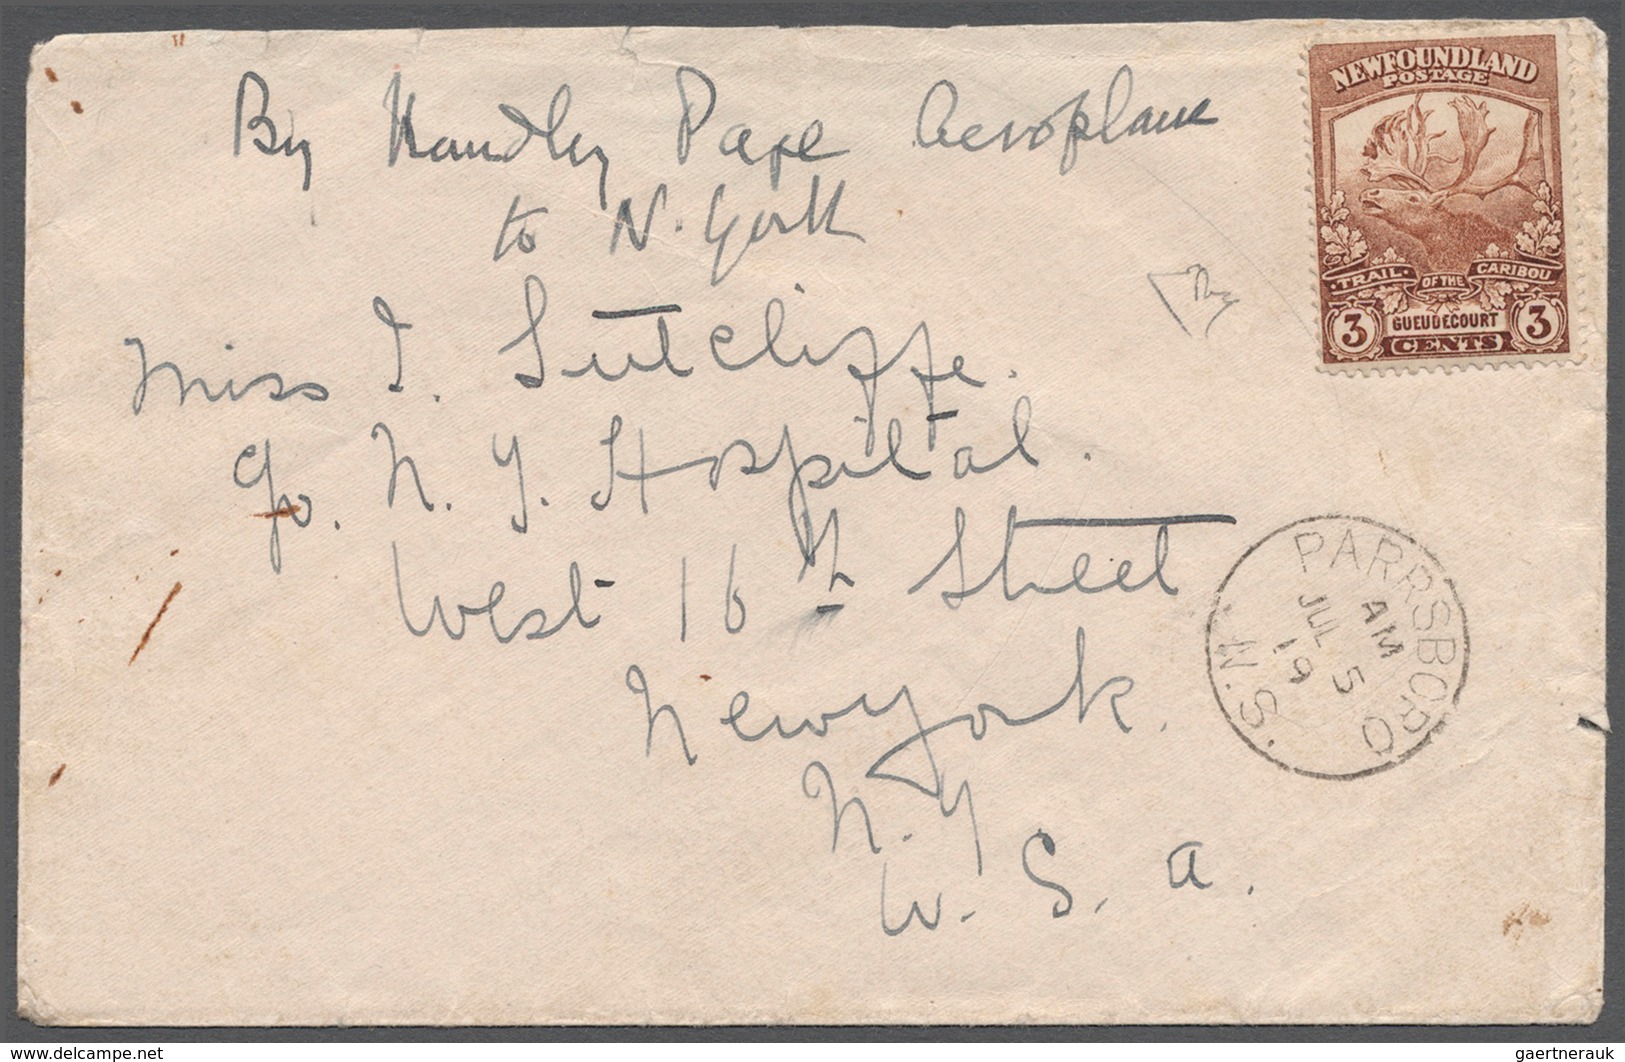 By Handley Page Aeroplane
to N. York
Miss I. Sutcliffe.
c/o. N. Y. Hospital.
West 16th Street
New York.
N. Y
U. S. a.
NEWFOUNDLAND
POSTAGE
TRAIL OF THE CARIBOU
3 GUEUDECOURT 3
CENTS
PARRSBORO
AM
JUL 5
19
N.S.
delcampe.net
gaertnerauk